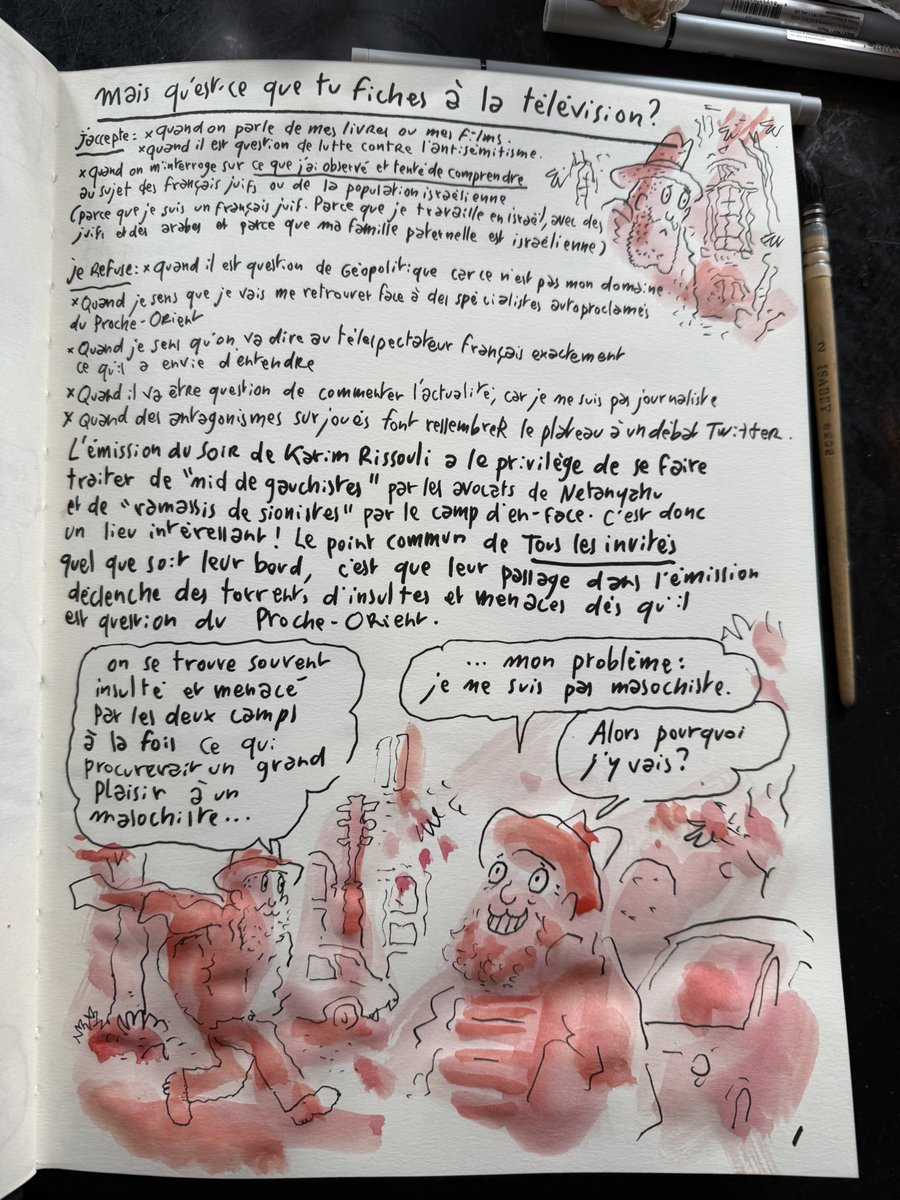 mais qu'est-ce que tu fiches à la télévision?
j'accepte: x quand on parle de mes livres ou mes films.
x quand il est question de lutte contre l'antisémitisme.
x quand on m'interroge sur ce que j'ai observé et tenté de comprendre
au sujet des français juifs ou de la population israélienne
(parce que je suis un français juif. Parce que je travaille en israël, avec des
juifs et des arabes et parce que ma famille paternelle est israélienne)
je Refuse: x quand il est question de Géopolitique car ce n'est pas mon domaine
x Quand je sens que je vais me retrouver face à des spécialistes autoproclamés
du Proche-Orient
x Quand je sens qu'on va dire au téléspectateur français exactement
ce qu'il a envie d'entendre
x Quand il va être question de commenter l'actualité, car je ne suis pas journaliste
x Quand des antagonismes surjoués font ressembler le plateau à un débat Twitter.
L'émission du soir de Karim Rissouli a le privilège de se faire
traiter de "nid de gauchistes" par les avocats de Netanyahu
et de "ramassis de sionistes" par le camp d'en-face. C'est donc
un lieu intéressant! Le point commun de Tous les invités
quel que soit leur bord, c'est que leur passage dans l'émission
déclenche des torrents d'insultes et menaces dès qu'il
est question du Proche-Orient.
on se trouve souvent
insulté et menacé
par les deux camps
à la fois ce qui
procurerait un grand
plaisir à un
masochiste...
... mon problème:
je ne suis pas masochiste.
Alors pourquoi
j'y vais?
1
2 ISABEY 6232